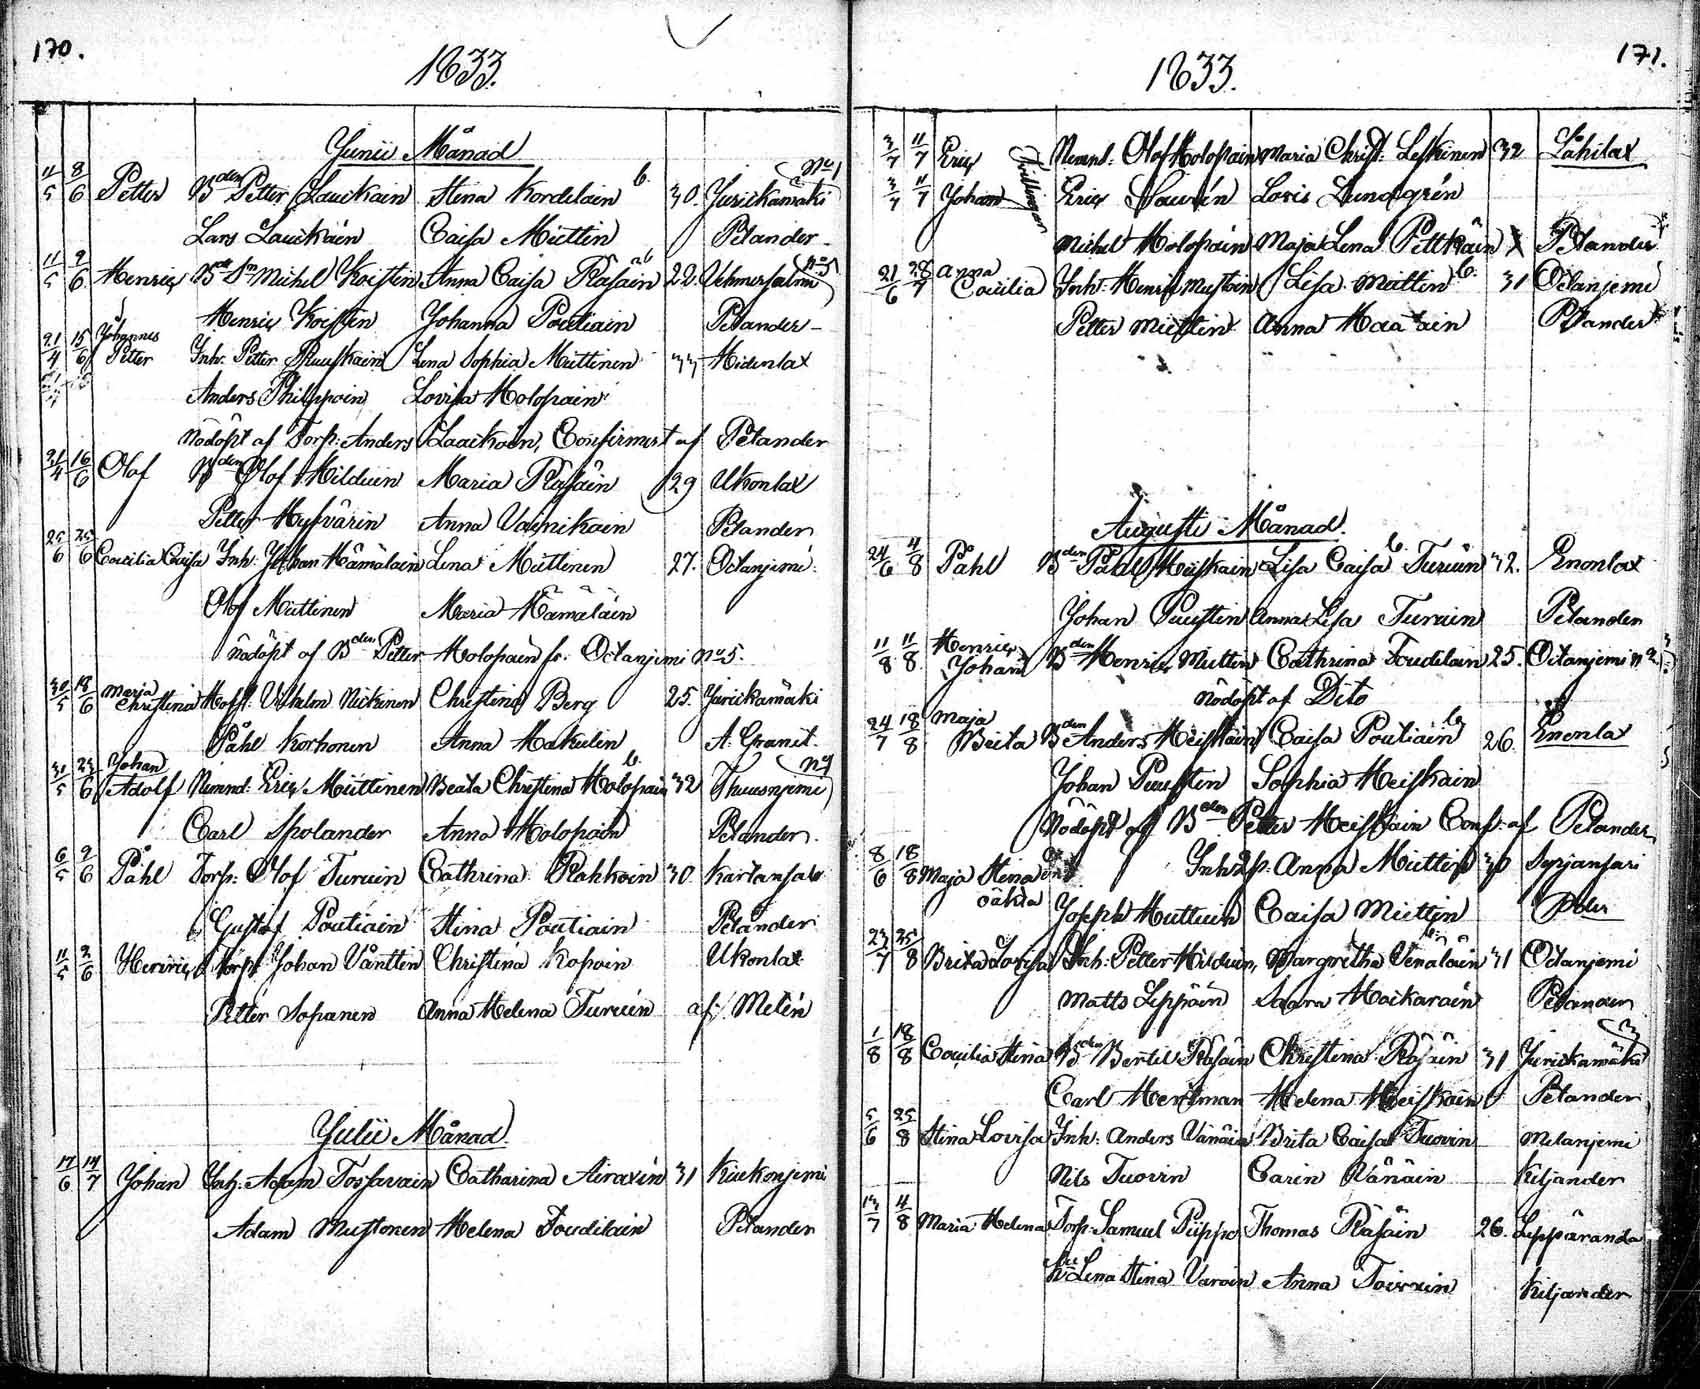 170.
1833.
Junii Månad
No 1
11/5 8/6 Petter Bden Petter Lauikain Stina Kordelain b. 30. Jurickamäki
Lars Lauikain Caisa Miettin Pelander
11/5 9/6 Henric Michel Koistin Anna Caisa Räsäin 22. Vehmersalmi No 5
Henric Koistin Johanna Poutiain Pelander
21/4 15/6 Johannes Petter Inh: Petter Ruuskain Lena Sophia Miettinen 33 Hidenlax
Anders Philippain Lovisa Holopain
nödöpt af Torp: Anders Laaikoin, Confirmert af Pelander
21/4 16/6 Olof Bden Olof Hilduin Maria Räsäin 29 Ukonlax
Petter Hyfvärin Anna Vainikain Pelander
25/6 25/6 Cæcilia Caisa Inh: Johan Hämäläin Lena Miettinen 27. Oitanjemi
Olof Miettinen Maria Hämäläin
nödöpt af Bden Petter Holopain fr. Oitanjemi No 5.
30/5 18/6 Maria Christina Vilhelm Nickinen Christina Berg 25. Jurickamäki
Påhl Korhonen Anna Hakulin A. Granit.
31/5 23/6 Johan Adolf Nemnd: Eric Miettinen Beata Christina Holopain b. 32 Thuusnjemi
Carl Spolander Anna Holopain Pelander.
6/5 9/6 Påhl Torp: Olof Turuin Cathrina Rahkoin 30. Kartansalo
Gustaf Poutiain Stina Poutiain Pelander
11/5 2/6 Henric Torp: Johan Vänttin Christina Kopoin Ukonlax
Petter Sopanen Anna Helena Turuin af Melén
Julii Månad.
17/6 14/7 Johan Adam Tossavain Catharina Airaxin 31 Kiukonjemi
Adam Mustonen Helena Toudilain Pelander
171.
1833.
3/7 11/7 Eric Tvillingar Nemnd: Olof Holopain Maria Christ: Leskinen 32 Lahilax
3/7 11/7 Johan Eric Sauvén Lovis Lundgrén
Michel Holopain Maja Lena Pittkäin Pelander
21/6 28/7 Anna Cæcilia Inh: Henric Mustoin Lisa Miettin b. 31 Oitanjemi
Petter Miettin Anna Pelander
Augusti Månad.
24/6 4/8 Påhl Bden Påhl Heiskain Lisa Caisa Turuin b. 32. Enonlax
Johan Puustin Anna Lisa Turuin Pelander
11/8 11/8 Henric Johan Bden Henric Miettin Cathrina Toudilain 25. Oitanjemi
nödöpt af Dito
24/7 18/8 Maja Beita Bden Anders Heiskain Caisa Poutiain b. 26. Enonlax
Johan Puustin Sophia Heiskain
Nödöpt af Bden Petter Heiskain Conf: af Pelander
8/6 18/8 Maja Stina oäkta Inh: Anna Miettin 30 Syrjansari
Joseph Huttuin Caisa Miettin
23/7 25/8 Brita Lovisa Inh: Petter Hilduin, Margretha Venäläin 31 Oitanjemi
Matts Leppäin Saara Hoikarain Pelander
1/8 18/8 Cæcilia Stina Bden Bertil Räsäin Christina Räsäin 31 Jurickamäki
Carl Hertman Helena Heiskain Pelander
5/6 25/8 Stina Lovisa Inh: Anders Vänäin Brita Caisa Tuovin Melanjemi
Nils Tuovin Carin Vänäin Kiljander
13/7 4/8 Maria Helena Torp: Samuel Piippo Thomas Räsäin 26. Leppäranda
Lena Stina Varoin Anna Toivain Kiljander